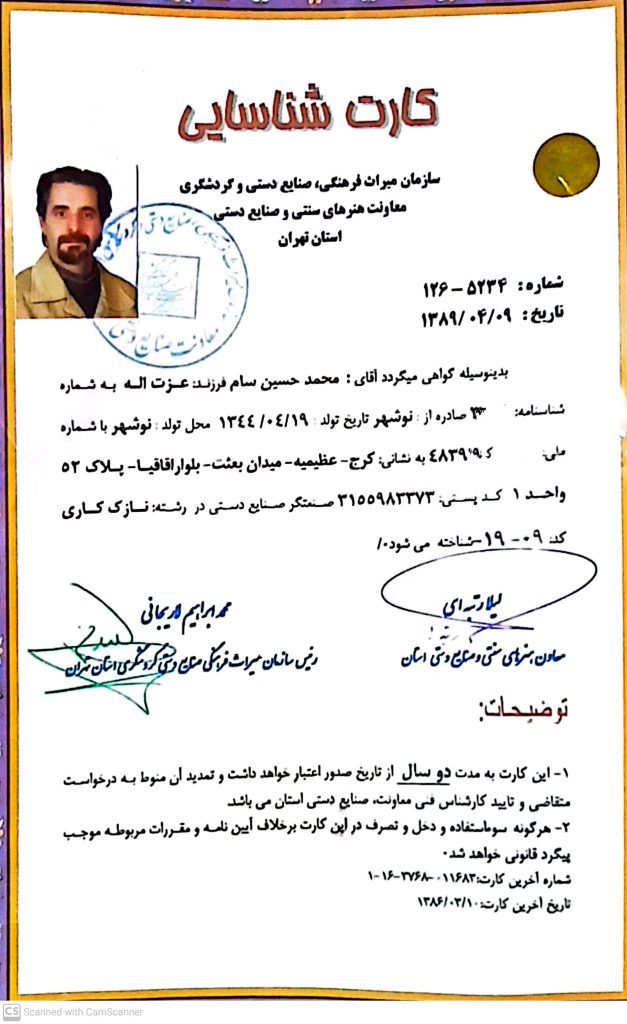 کارت شناسایی
سازمان میراث فرهنگی، صنایع دستی و گردشگری
معاونت هنرهای سنتی و صنایع دستی
استان تهران
شماره: ۵۲۳۴-۱۲۶
تاریخ: ۱۳۸۹/۰۴/۰۹
بدینوسیله گواهی میگردد آقای: محمد حسین سام فرزند: عزت اله به شماره
شناسنامه: صادره از: نوشهر تاریخ تولد: ۱۳۴۴/۰۴/۱۹ محل تولد: نوشهر با شماره
ملی: به نشانی: کرج- عظیمیه- میدان بعثت- بلوار اقاقیا- پلاک ۵۲
واحد ۱ کد پستی: ۳۱۵۵۹۸۳۳۷۳ صنعتگر صنایع دستی در رشته: نازک کاری
کد: ۰۹-۱۹ شناخته می شود./
لیلا رتبه ای
معاون هنرهای سنتی و صنایع دستی استان
محمد ابراهیم لاریجانی
رئیس سازمان میراث فرهنگی صنایع دستی گردشگری استان تهران
توضیحات:
۱- این کارت به مدت دو سال از تاریخ صدور اعتبار خواهد داشت و تمدید آن منوط به درخواست
متقاضی و تایید کارشناس فنی معاونت، صنایع دستی استان می باشد.
۲- هرگونه سوءاستفاده و دخل و تصرف در این کارت برخلاف آیین نامه و مقررات مربوطه موجب
پیگرد قانونی خواهد شد.
شماره آخرین کارت: ۰۱۱۶۸۳-۳۷۶۸-۱۶-۱
تاریخ آخرین کارت: ۱۳۸۶/۰۳/۱۰
معاونت صنایع دستی
CS Scanned with CamScanner